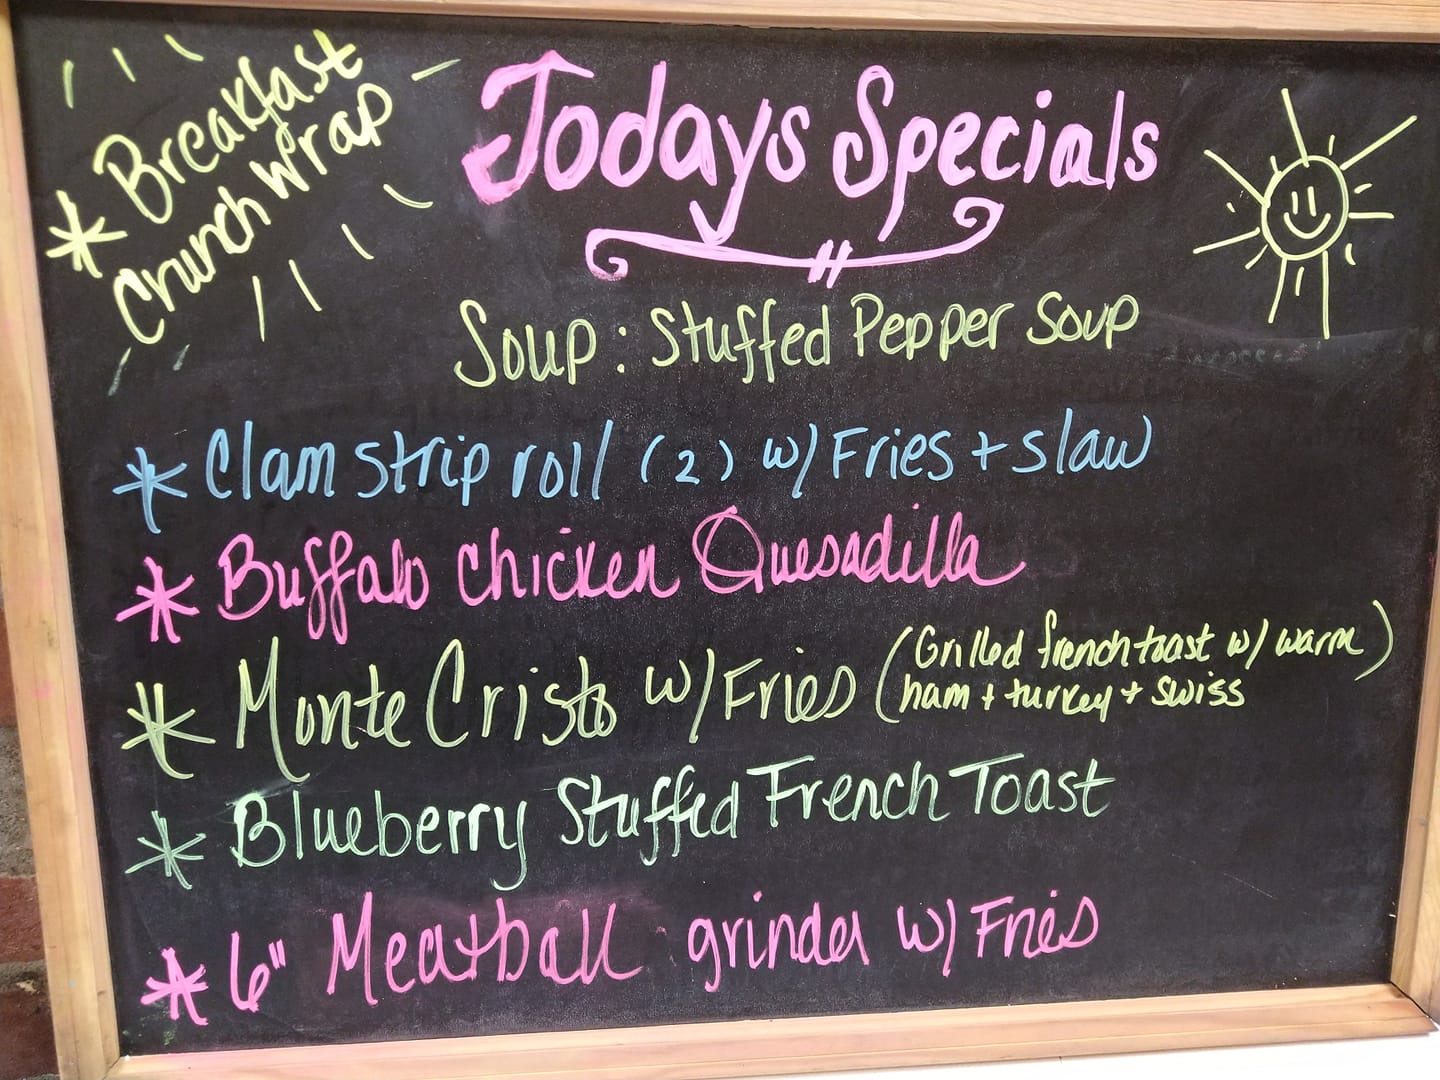 * Breakfast
Crunch wrap
Todays Specials
Soup: Stuffed Pepper Soup
* Clam strip roll (2) w/ Fries + slaw
* Buffalo chicken Quesadilla
* Monte Cristo w/ Fries (Grilled french toast w/ warm
ham + turkey + swiss)
* Blueberry Stuffed French Toast
* 6" Meatball grinder w/ Fries